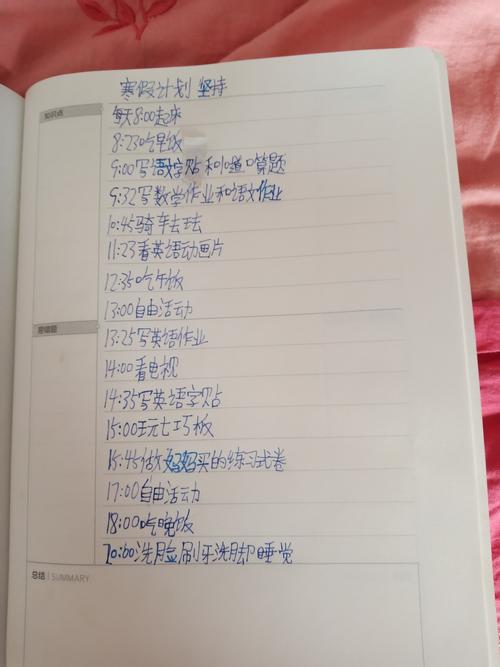 寒假计划 坚持
知识点
每天8:00起来
8:23吃早饭
9:00写语文字贴和道口算题
9:32写数学作业和语文作业
10:45骑车去玩
11:23看英语动画片
12:35吃午饭
13:00自由活动
13:25写英语作业
14:00看电视
14:35写英语字贴
15:00玩七巧板
15:45做妈妈买的练习式卷
17:00自由活动
18:00吃晚饭
20:00洗脸刷牙洗脚睡觉
总结 | SUMMARY